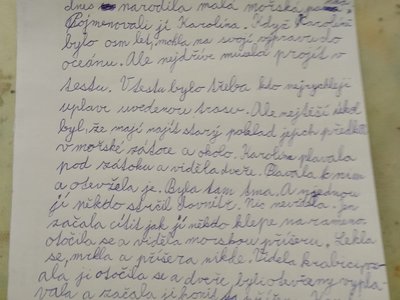 dnes narodila malá mořská
Pojmenovali jí Karolína. Když Karolíně
bylo osm let, mohla na svojí výpravu do
oceánu. Ale nejdříve musela projít v
testu. V testu bylo třeba kdo nejrychleji
uplave uvedenou trasu. Ale nejtěší úkol
byl, že mají najít starý poklad jejich předků
v mořské zátoce a okolo. Karolína plavala
pod zátoku a viděla dveře. Plavala k nim
a otevřela je. Byla tam tma. A najednou
jí někdo strčil dovnitř. Nic neviděla. Jen
začala cítit jak jí někdo klepe na rameno.
otočila se a viděla mořskou příšeru. Lekla
se, mrkla a příšera nikde. Viděla krabici po
ala ji otočila se a dveře, byli otevřany vypla
vala a začala jí